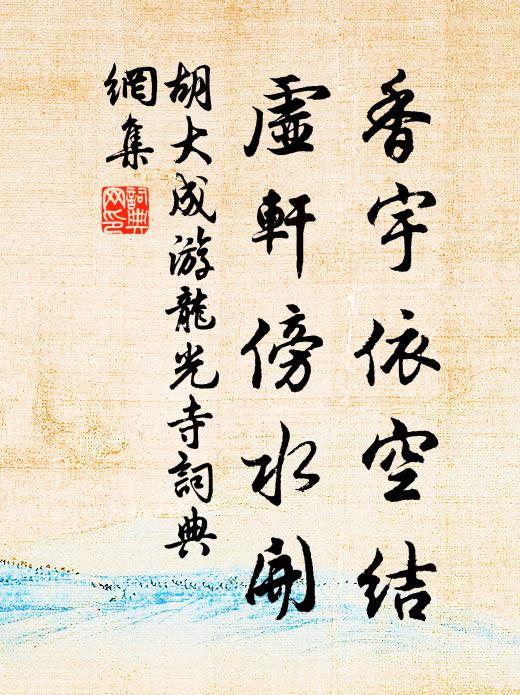 香宇依空结
虛軒傍水開
胡大成游龍光寺詞典
網集
詞典
网印